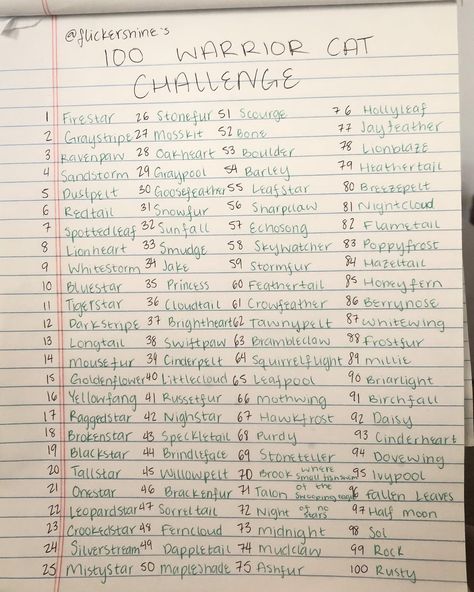 @flickershine's
100 WARRIOR CAT
CHALLENGE
1 Firestar
2 Graystripe
3 Ravenpaw
4 Sandstorm
5 Dustpelt
6 Redtail
7 Spottedleaf
8 Lionheart
9 Whitestorm
10 Bluestar
11 Tigerstar
12 Darkstripe
13 Longtail
14 Mousefur
15 Goldenflower
16 Yellowfang
17 Raggedstar
18 Brokenstar
19 Blackstar
20 Tallstar
21 Onestar
22 Leopardstar
23 Crookedstar
24 Silverstream
25 Mistystar
26 Stonefur
27 Mosskit
28 Oakheart
29 Graypool
30 Goosefeather
31 Snowfur
32 Sunfall
33 Smudge
34 Jake
35 Princess
36 Cloudtail
37 Brightheart
38 Swiftpaw
39 Cinderpelt
40 Littlecloud
41 Russetfur
42 Nighstar
43 Speckletail
44 Brindleface
45 Willowpelt
46 Brackenfur
47 Sorreltail
48 Ferncloud
49 Dappletail
50 Mapleshade
51 Scourge
52 Bone
53 Boulder
54 Barley
55 Leafstar
56 Sharpclaw
57 Echosong
58 Skywatcher
59 Stormfur
60 Feathertail
61 Crowfeather
62 Tawnypelt
63 Brambleclaw
64 Squirrelflight
65 Leafpool
66 Mothwing
67 Hawkfrost
68 Purdy
69 Stoneteller
70 Brook where small fish swim
71 Talon of the swooping eagle
72 Night of no stars
73 midnight
74 mudclaw
75 Ashfur
76 Hollyleaf
77 Jayfeather
78 Lionblaze
79 Heathertail
80 Breezepelt
81 Nightcloud
82 Flametail
83 Poppyfrost
84 Hazeltail
85 Honeyfern
86 Berrynose
87 Whitewing
88 Frostfur
89 Millie
90 Briarlight
91 Birchfall
92 Daisy
93 Cinderheart
94 Dovewing
95 Ivypool
96 Fallen Leaves
97 Half moon
98 Sol
99 Rock
100 Rusty